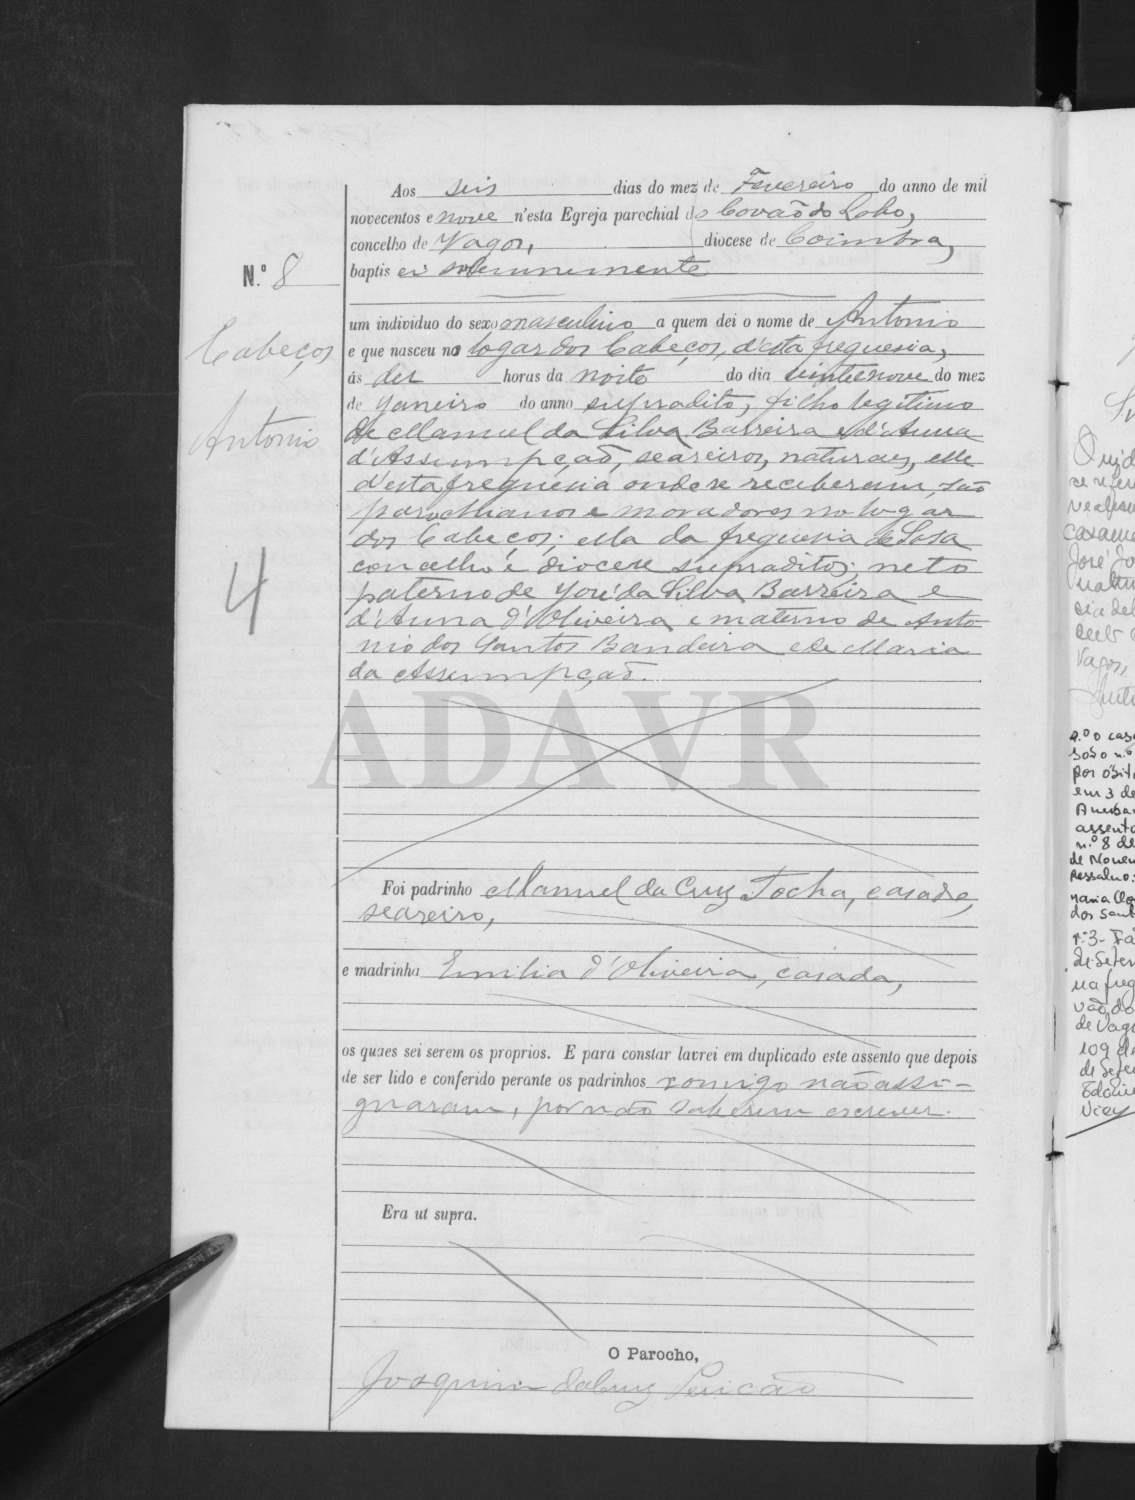 Aos seis dias do mez de Fevereiro do anno de mil
novecentos e nove n'esta Egreja parochial do Covão do Lobo,
concelho de Vagos, diocese de Coimbra,
N.º 8
baptisei solemnemente
um individuo do sexo masculino a quem dei o nome de Antonio
Cabeços
e que nasceu no logar dos Cabeços, d'esta freguesia,
ás dez horas da noite do dia vinte e nove do mez
de Janeiro do anno supradito, filho legitimo
Antonio
de Manuel da Silva Barreira e d'Anna
d'Assumpção, seareiros, naturaes, elle
d'esta freguesia onde se receberam, são
parochianos e moradores no logar
dos Cabeços; ella da freguesia de Sosa
concelho e diocese supraditos; neto
4
paterno de José da Silva Barreira e
d'Anna d'Oliveira e materno de Anto
nio dos Santos Bandeira e de Maria
da Assumpção.
ADAVR
Foi padrinho Manuel da Cruz Tocha, casado,
seareiro,
e madrinha Emilia d'Oliveira, casada,
os quaes sei serem os proprios. E para constar lavrei em duplicado este assento que depois
de ser lido e conferido perante os padrinhos comigo não assi-
gnaram, por não saberem escrever.
Era ut supra.
O Parocho,
Joaquim da Cruz